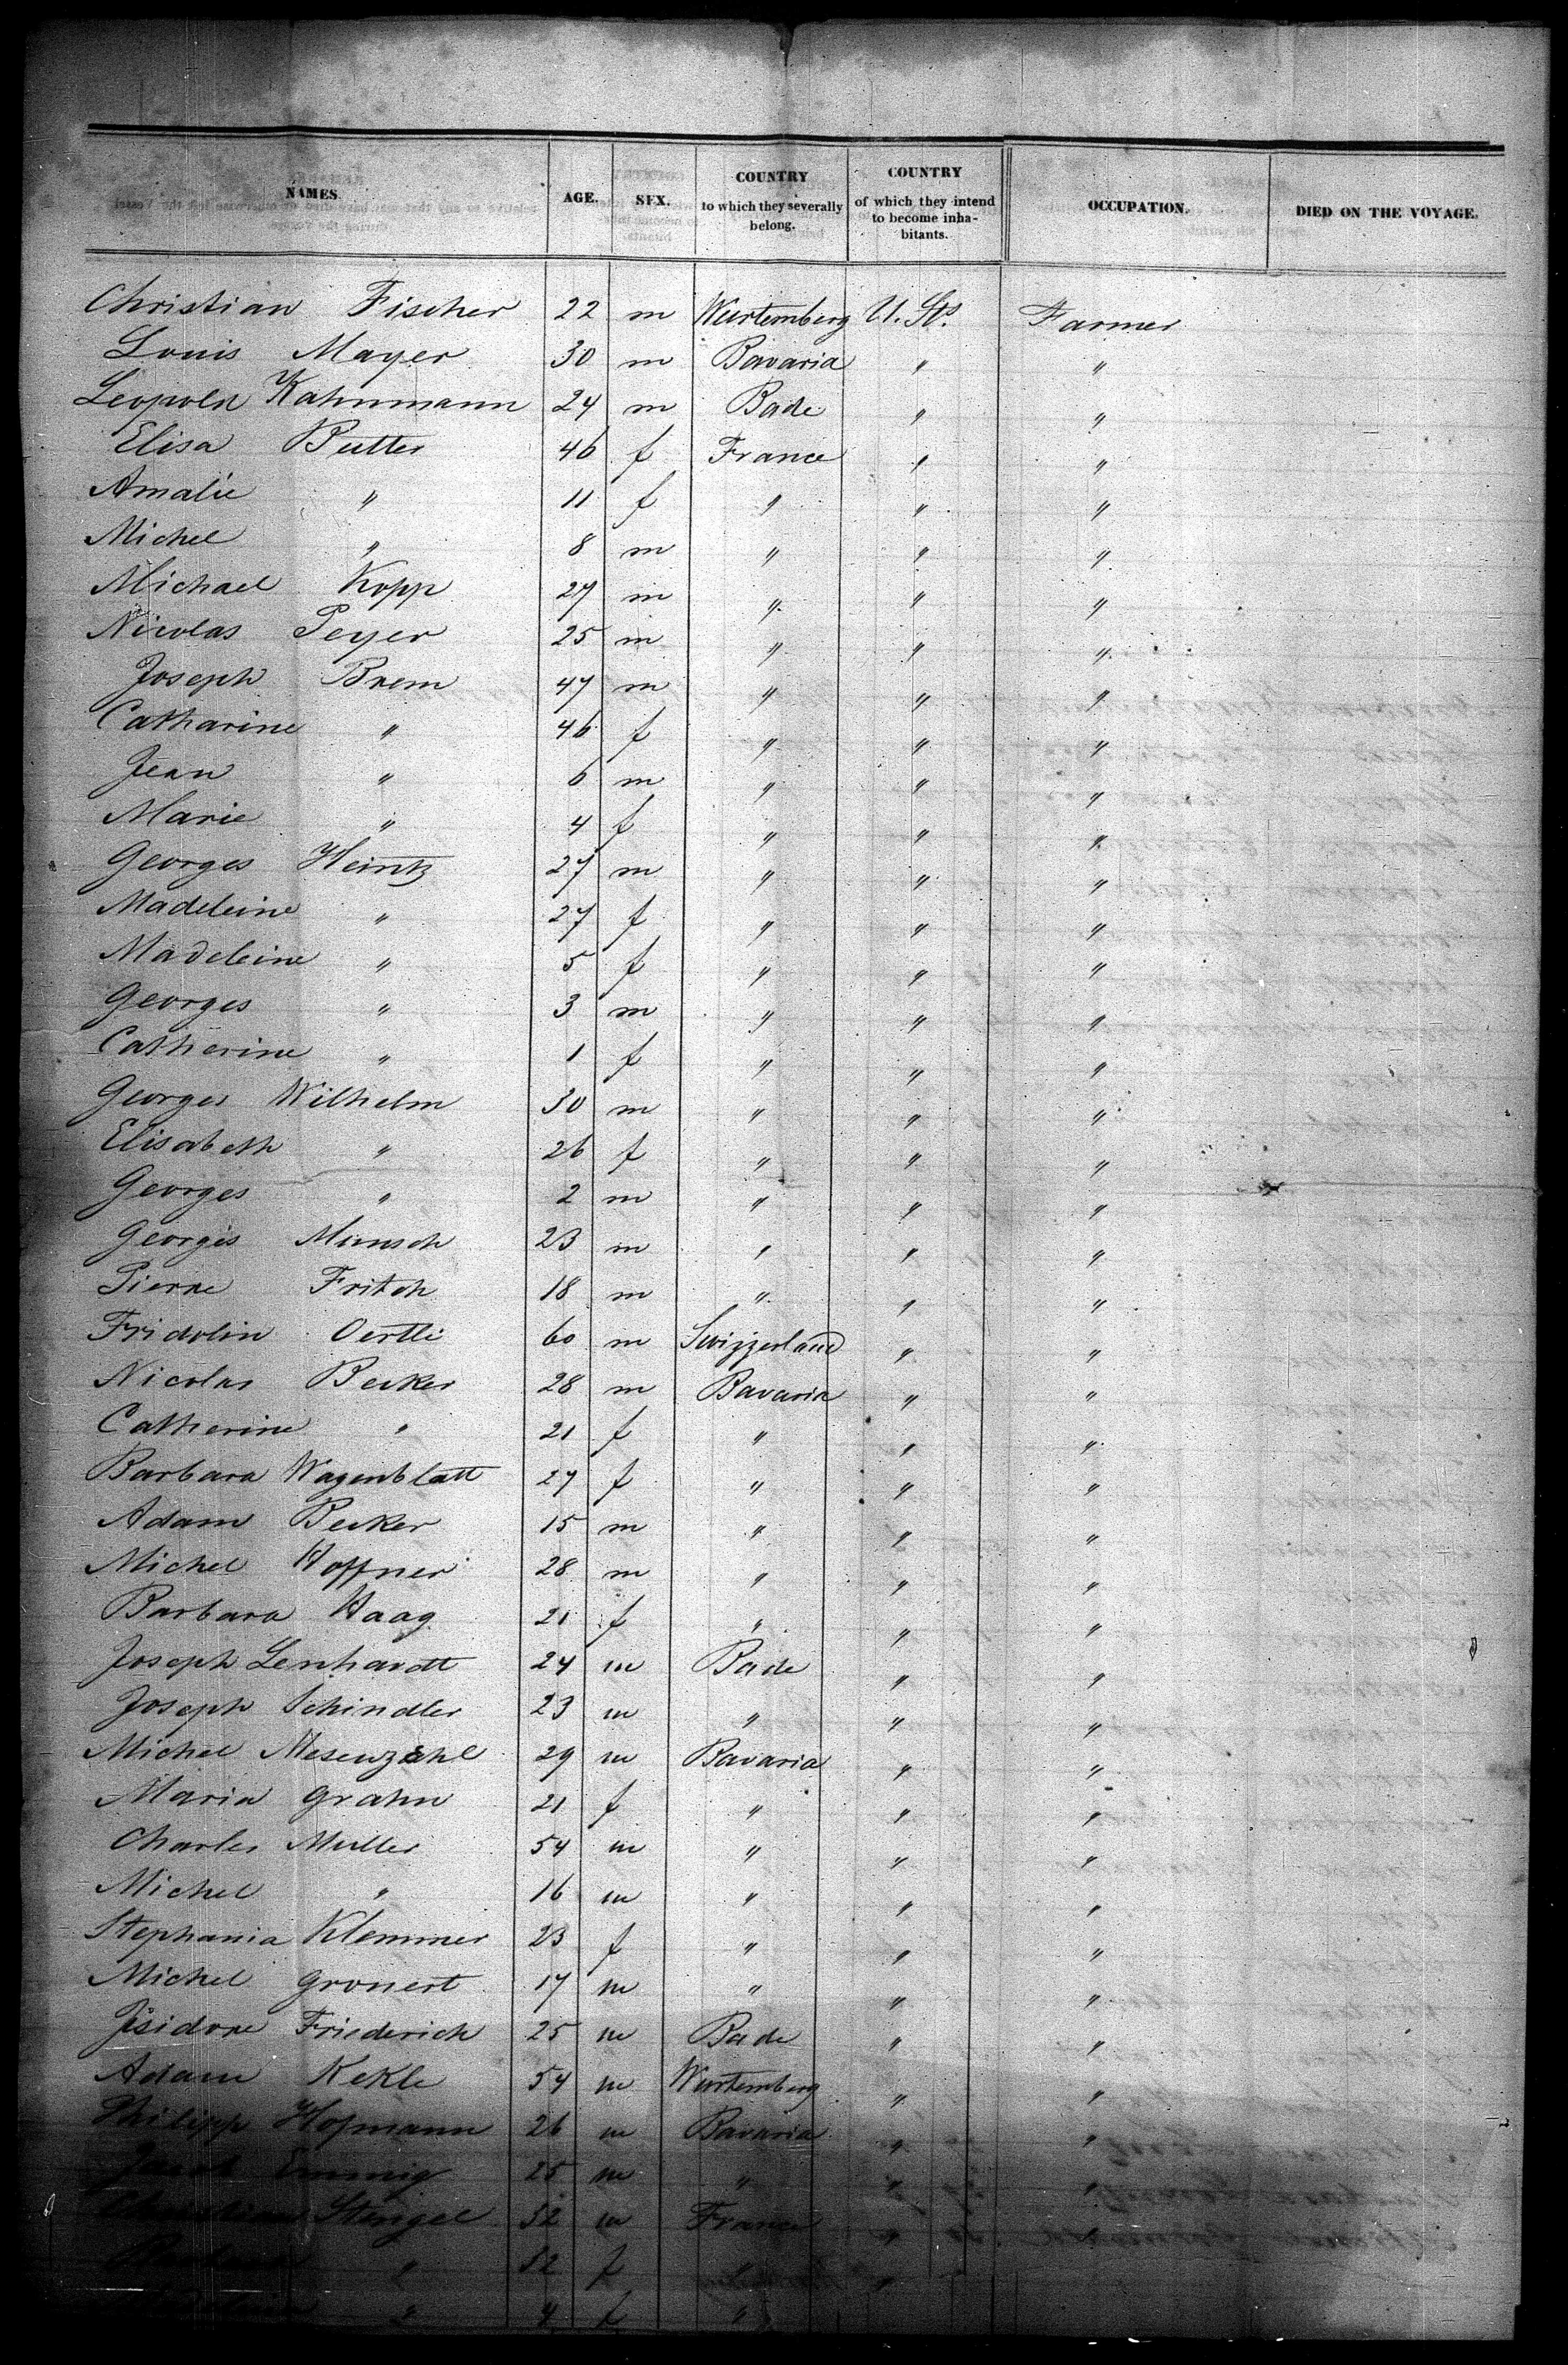 NAMES. AGE. SEX. COUNTRY to which they severally belong. COUNTRY of which they intend to become inhabitants. OCCUPATION. DIED ON THE VOYAGE.
Christian Fischer 22 m Wurtemberg U. Sts. Farmer
Louis Mayer 30 m Bavaria " "
Leopold Kahnmann 24 m Bade " "
Elisa Butter 46 f France " "
Amalie " 11 f " " "
Michel " 8 m " " "
Michael Kopp 27 m " " "
Nicolas Peyer 25 m " " "
Joseph Brem 47 m " " "
Catharine " 46 f " " "
Jean " 6 m " " "
Marie " 4 f " " "
Georges Heintz 27 m " " "
Madeleine " 27 f " " "
Madeleine " 5 f " " "
Georges " 3 m " " "
Catherine " 1 f " " "
Georges Wilhelm 30 m " " "
Elisabeth " 26 f " " "
Georges " 2 m " " "
Georges Munsch 23 m " " "
Pierre Fritch 18 m " " "
Fridolin Oertli 60 m Swizzerland " "
Nicolas Becker 28 m Bavaria " "
Catherine " 21 f " " "
Barbara Wagenblatt 27 f " " "
Adam Becker 15 m " " "
Michel Hoffner 28 m " " "
Barbara Haag 21 f " " "
Joseph Lenhardt 24 m Bade " "
Joseph Schindler 23 m " " "
Michel Mesenzehl 29 m Bavaria " "
Maria Grahn 21 f " " "
Charles Muller 54 m " " "
Michel " 16 m " " "
Stephania Klemmer 23 f " " "
Michel Gronert 17 m " " "
Isidore Friederich 25 m Bade " "
Adam Kekle 54 m Wurtemberg " "
Philipp Hofmann 26 m Bavaria " "
Jacob Emmig 25 m " " "
Christian Stengel 52 m France " "
" 52 f " "
" 4 f "